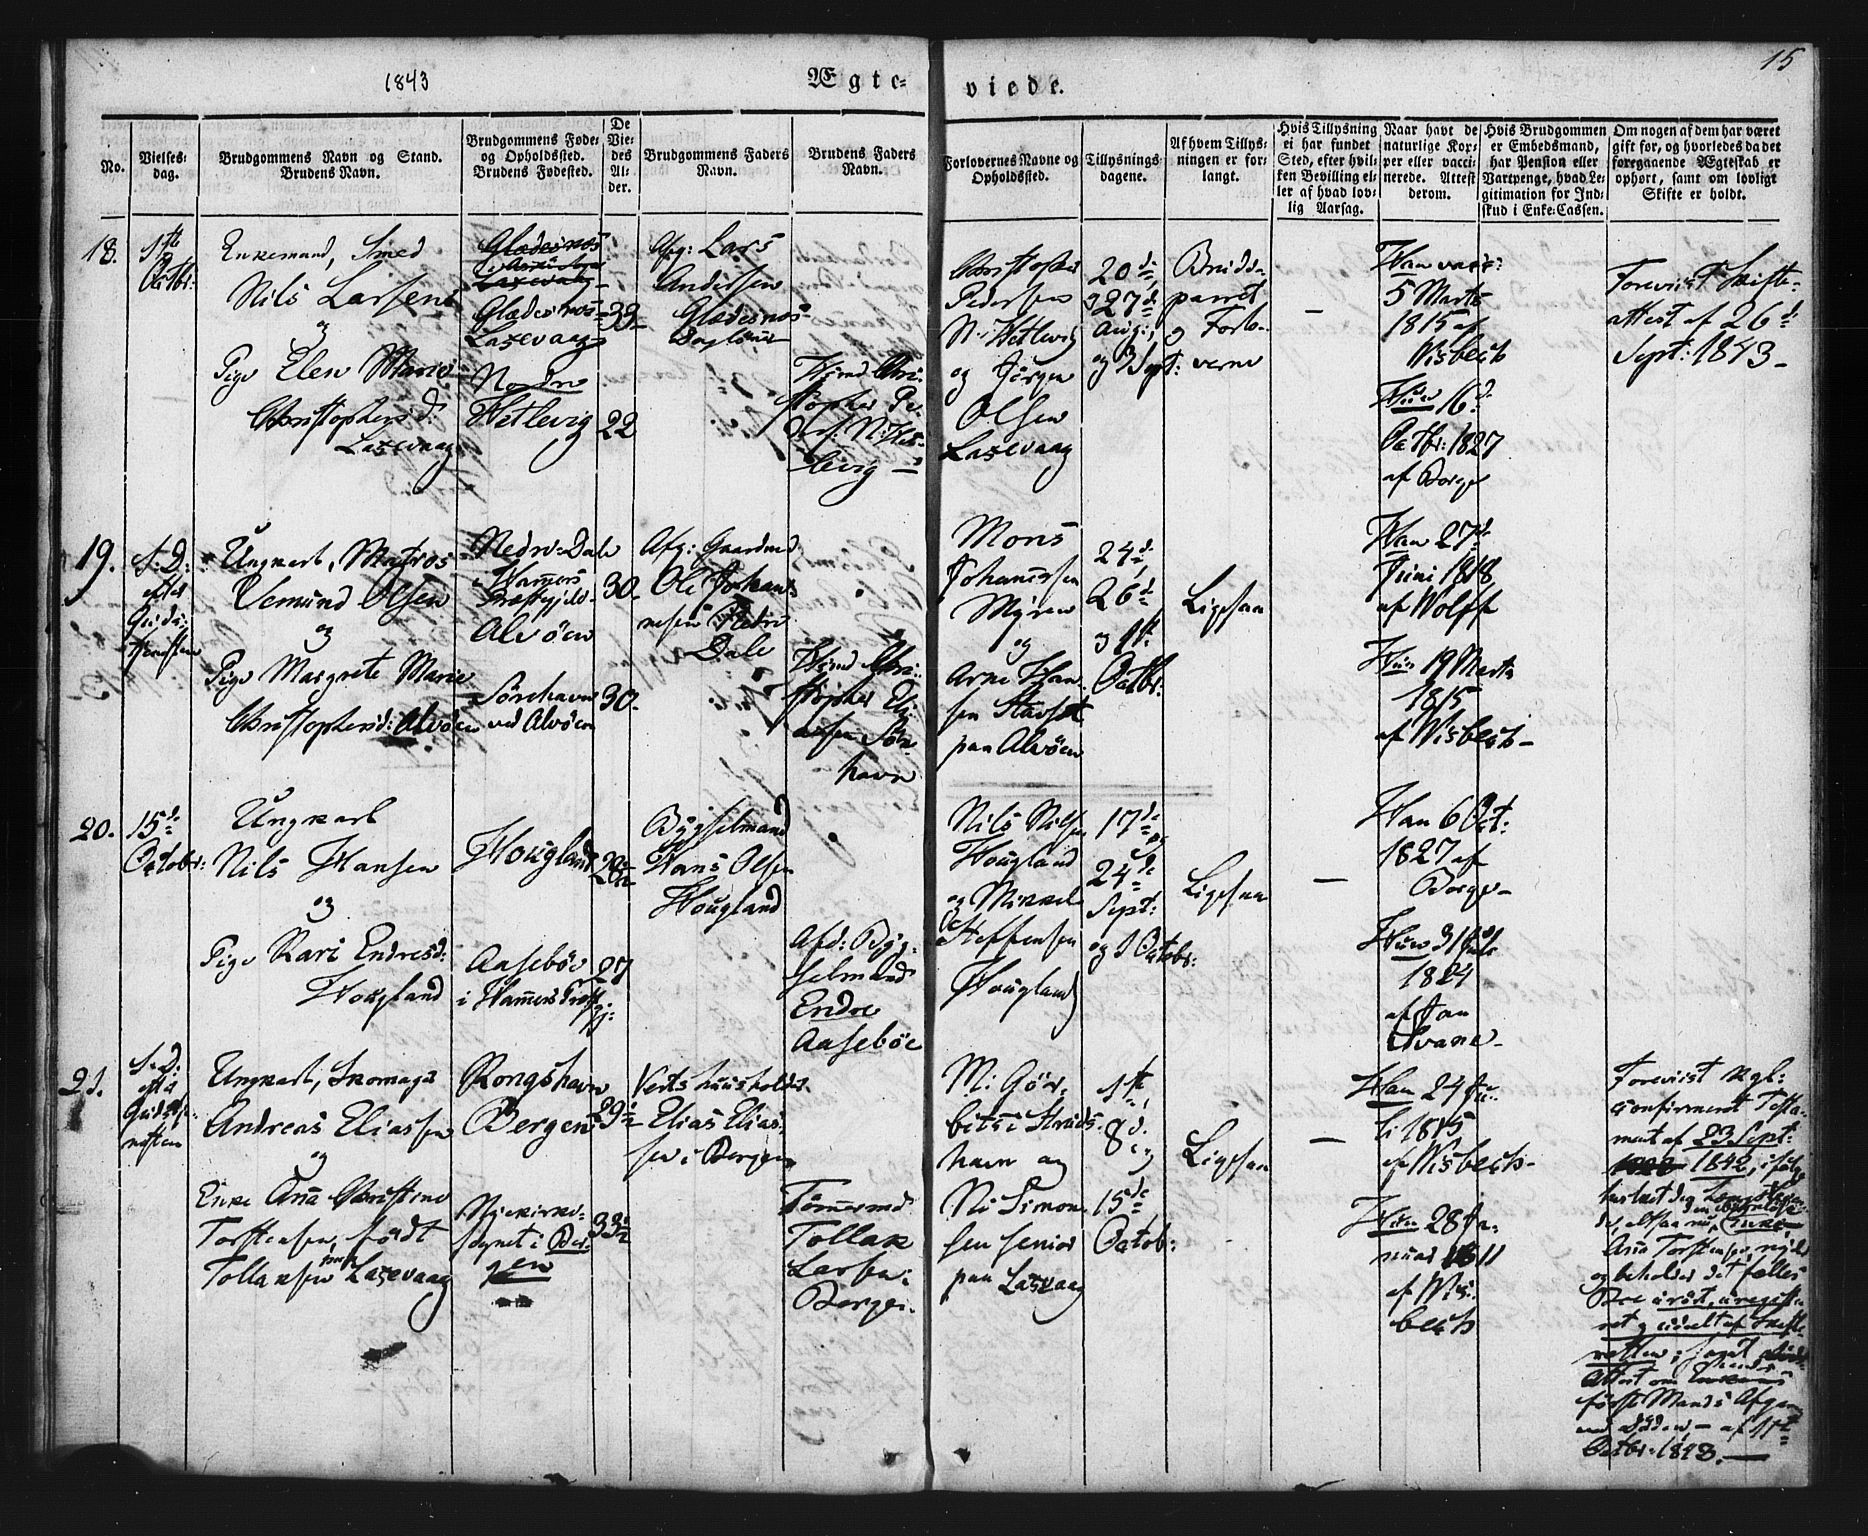 15
1843
Ægte-
viede.
No.
Vielses-
dag.
Brudgommens Navn og Stand.
Brudens Navn.
Brudgommens Føde-
og Opholdssted.
Brudens Fødested.
De
Vie-
des
Al-
der.
Brudgommens Faders
Navn.
Brudens Faders
Navn.
Forlovernes Navne og
Opholdssted.
Tillysnings-
dagene.
Af hvem Tillys-
ningen er for-
langt.
Hvis Tillysning
ei har fundet
Sted, efter hvil-
ken Bevilling el-
ler af hvad lov-
lig Aarsag.
Naar havt de
naturlige Kop-
per eller vacci-
nerede. Attest
derom.
Hvis Brudgommen
er Embedsmand,
har Pension eller
Vartpenge, hvad Le-
gitimation for Ind-
skud i Enke-Cassen.
Om nogen af dem har været
gift før, og hvorledes da det
foregaaende Ægteskab er
ophørt, samt om lovligt
Skifte er holdt.
18.
1ste
Octbr:
Enkemand, Smed
Nils Larsen
og
Pige Elen Marie
Christophersd:
Laxevaag
Glædesnos
Laxevaag
Nordre
Hetlevig
33
22
Afg: Lars
Andersen
Glædesnos
Hmd Chri-
stopher Pe-
ders: N: Het-
levig
Christopher
Pedersen
N: Hetlevig
og Jørgen
Olsen
Laxevaag
20de,
27de
Aug:,
og 3 Sept:
Brude-
parret
og Forlo-
verne
–
Han vacc:
5 Marts
1815 af
Wisbech
Hun 16d:
Octbr: 1827
af Borge
Foreviist Skifte-
attest af 26d:
Sept: 1843 –
19.
S: D:
efter
Guds-
tjenesten
Ungkarl, Matros
Vemund Olsen
og
Pige Margrete Marie
Christophersd: Alvøen
Nedre-Dale
i Hammers
Præstegjeld-
Alvøen
Sørehavn
ved Alvøen
30.
30.
Afg: Gaardmd
Ole Johan-
nesen Nedre
Dale
Hmd Chri-
stopher Eli-
assen Søre
havn
Mons
Johannesen
Myren
og
Arne Han-
sen
paa Alvøen
24d:
26d:
og 1ste
Octbr:
Ligesaa
Han 27de
Juni 1818
af Wolff
Hun 19 Marts
1815
af Wisbech –
20.
15de
Octobr:
Ungkarl
Nils Hansen
og
Pige Kari Endresd:
Hougland
Hougland
Aasebøe
i Hammers Præst
gj:
28½
27
Bygselmand
Hans Olsen
Hougland
Afd: Byg-
selmand
Endre
Aasebøe
Nils Nilsen
Hougland
og Mikkel
Steffensen
Hougland
17de
24de
Sept:
og 1 Octobr:
Ligesaa
–
Han 6 Oct:
1827 af
Borge –
Hun 31 Juli
1824
af Jan
Svane –
21.
S: d:
efter
Gudstje-
nesten
Ungkarl, Skomager
Andreas Eliassen
og
Enke Ana Christine
Torstensen, født
Tollaksen paa Laxevaag
Rongshavn
Bergen
Nykirke-
sognet i Ber-
gen
29½
33½
Vertshuusholder
Elias Elias-
sen i Bergen
Tømmermd
Tollak
Larsen i
Bergen
M: Gør-
bitz i Struds-
havn og
Ni: Simon-
sen senior
paa Laxevaag
1ste,
8d:
og
15de
Octobr:
Ligesaa
–
Han 24 Ju-
li 1815
af Wisbech –
Hun 28 Ja-
nuar 1811
af Wis-
bech
Foreviist kgl:
confirmeret Testa-
ment af 23 Sept:
1842, ifølge
Ana Torstensen, nyder
og beholder det fælles
Boe urørt, uregistre-
ret og udeelt af Skifte-
retten; samt
Attest om
første Mands Afgang
ved Døden – af 11te
Octbr: 1843. –